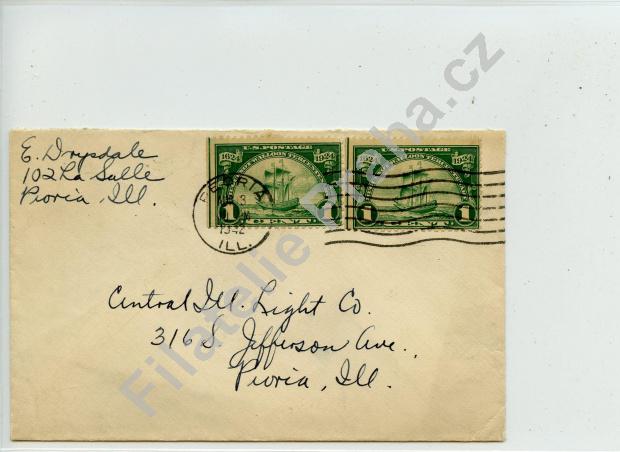 E. Drysdale
102 La Salle
Peoria, Ill.
U.S. POSTAGE
1624 1924
HUGUENOT-WALLOON TERCENTENARY
1 1
CENTS
U.S. POSTAGE
1624 1924
HUGUENOT-WALLOON TERCENTENARY
1 1
CENTS
PEORIA
3
1942
ILL.
Central Ill. Light Co.
316 S. Jefferson Ave.,
Peoria, Ill.
Filatelie Praha.cz